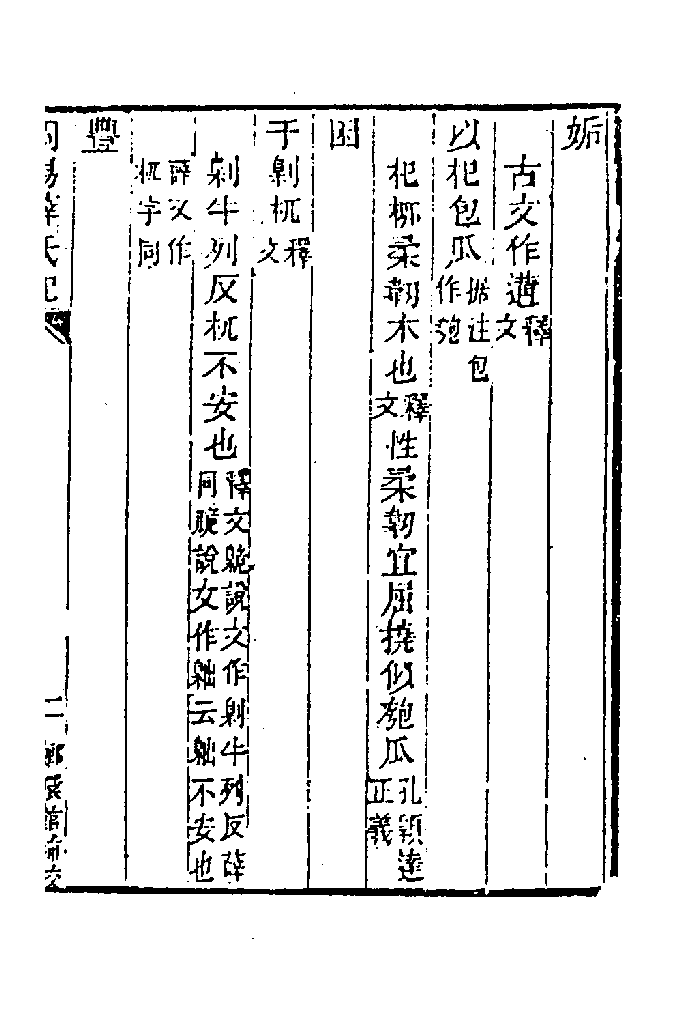 姤
古文作遘
釋文
以杞包瓜
据注包
作匏
杞桺柔韌木也
釋文
性柔韌宜屈撓似匏瓜
孔穎達
正義
困
于劓杌
釋文
劓牛列反杌不安也
釋文臲說文作劓牛列反薛
同卼說文作云不安也
薛又作
杌字同
豐
周易薛氏記
二
嫏嬛館補校